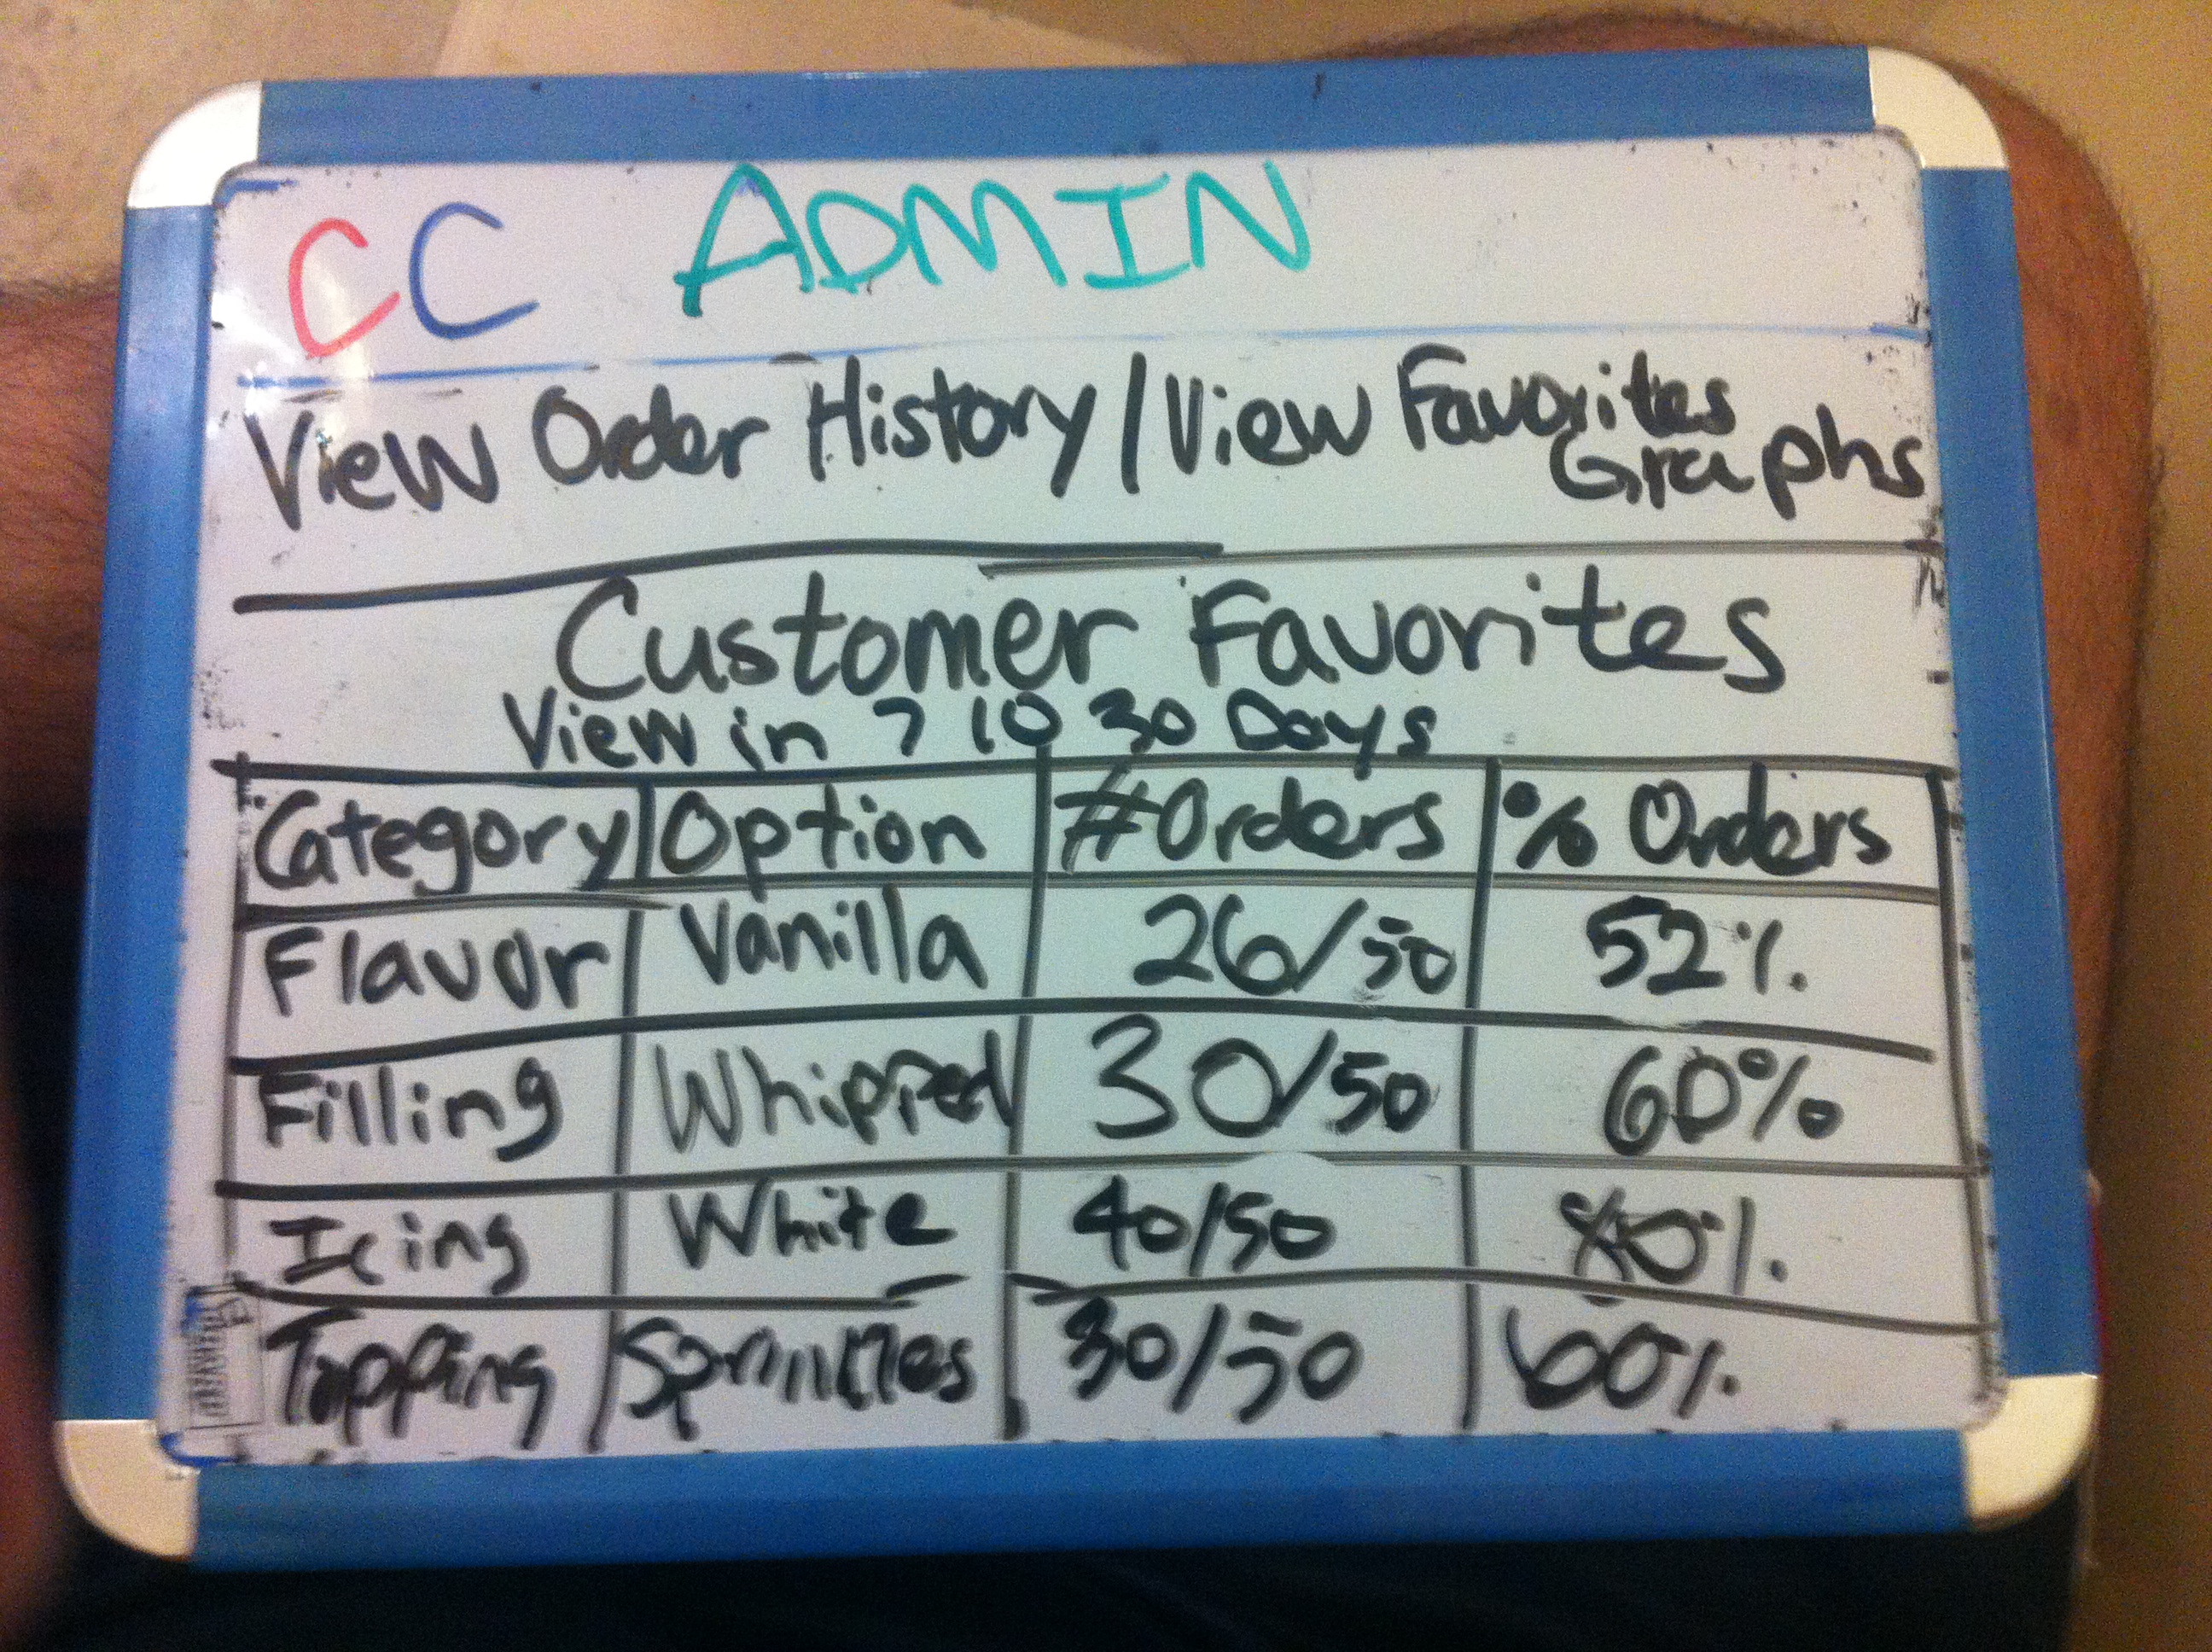 CC ADMIN
View Order History / View Favorites Graphs
Customer Favorites
View in 7 10 30 Days
Category Option # Orders % Orders
Flavor Vanilla 26/50 52%
Filling Whipped 30/50 60%
Icing White 40/50 80%
Topping Sprinkles 30/50 60%